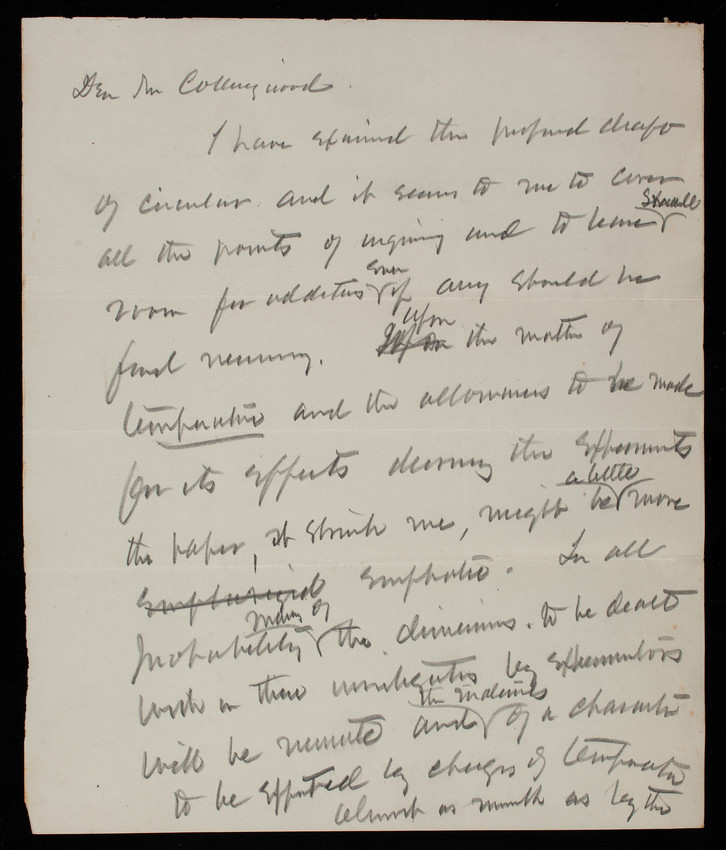 Dear Mr Collingwood.
I have examined the proposed draft
of circular. and it seems to me to cover
all the points of inquiry and to leave
should
room for additions even if any should be
found necessary. upon the matter of
temperature and the allowances to be made
for its effects during the experiments
the paper, it struck me, might be a little more
emphatic. In all
probability many of the dimensions. to be dealt
with in these investigations by experimenters
will be minute and the materials of a character
to be affected by changes of temperature
almost as much as by the